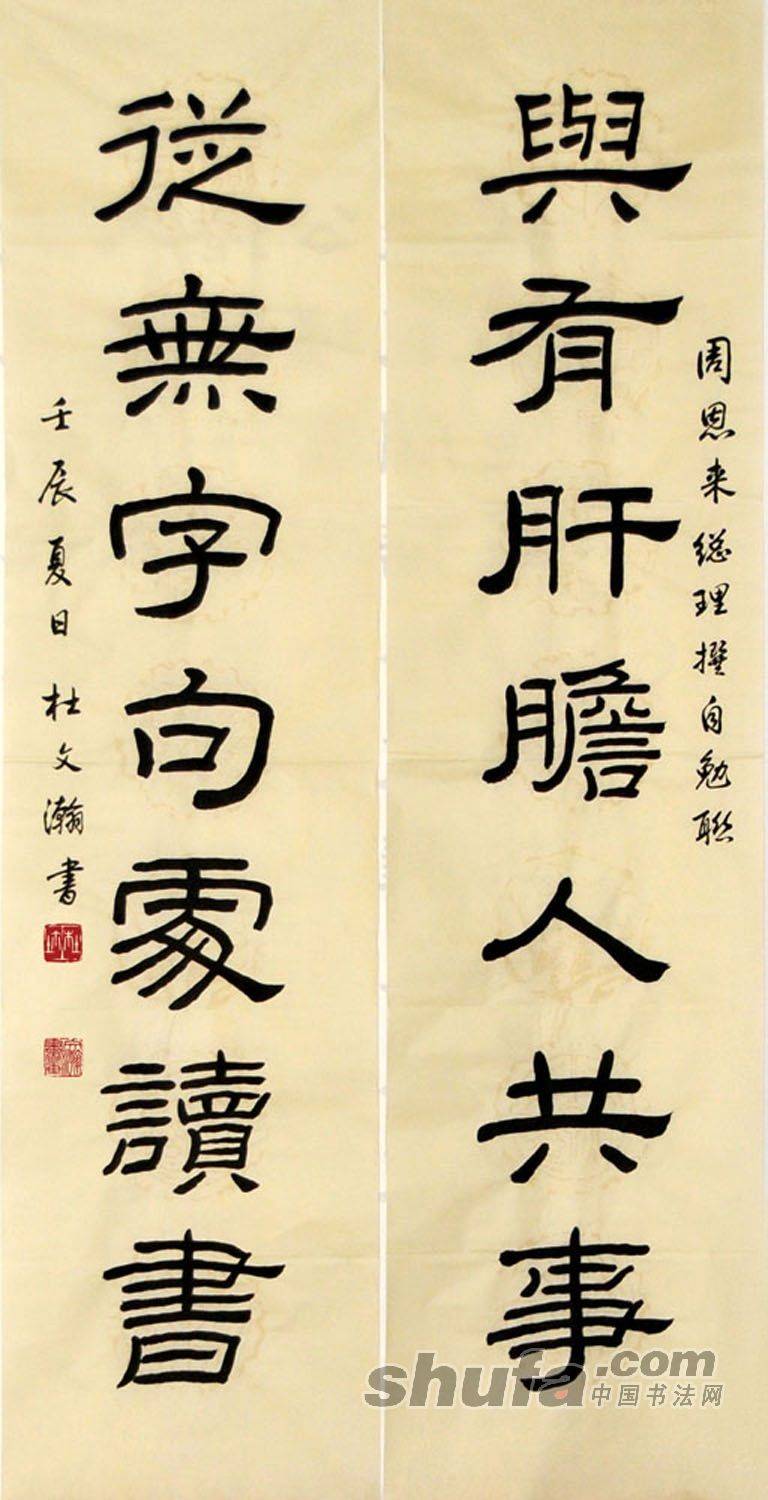 周恩来總理撰自勉聯
與有肝膽人共事
從無字句處讀書
壬辰夏日 杜文瀚書
shufa.com
中国书法网